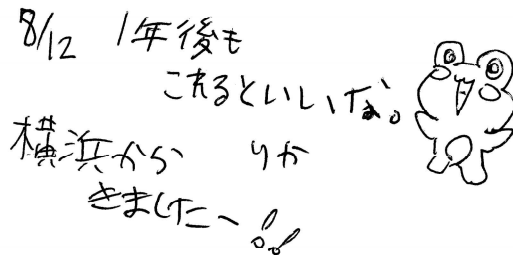 8/12 1年後も
これるといいな。
横浜から りか
きました〜!!